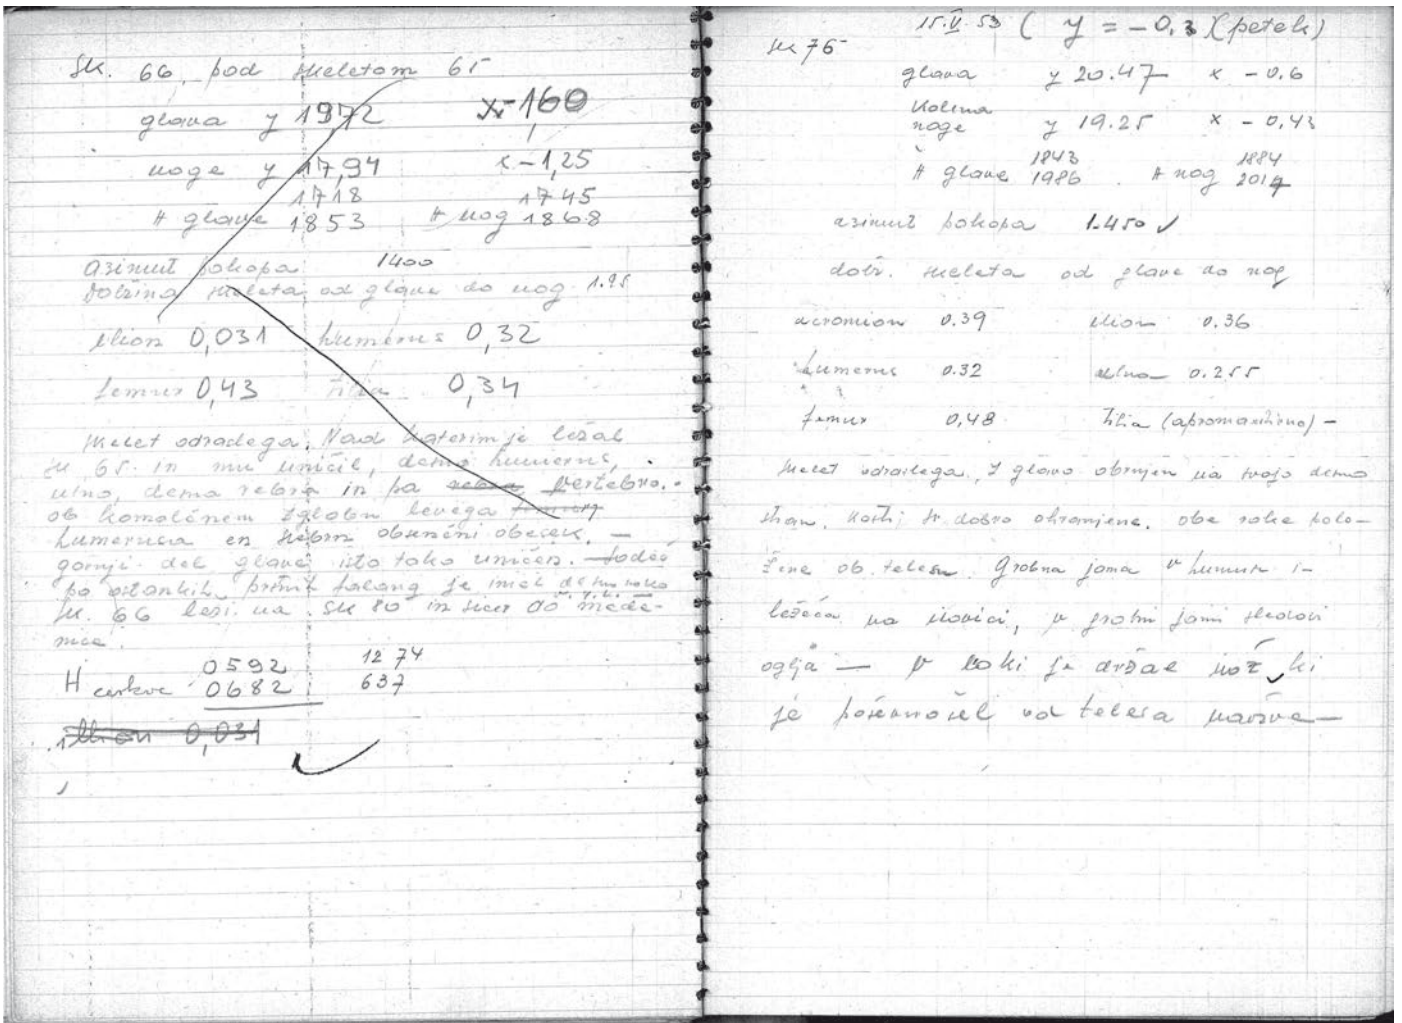 Sk. 66, pod skeletom 65
glava y 1972 x-1,60
noge y 17,94 x-1,25
1718 1745
H glave 1853 H nog 1868
azimut pokopa 1400
Dolžina skeleta od glave do nog 1.95
ilion 0,031 humerus 0,32
femur 0,43 tibia 0,34
skelet odraslega. Nad katerim je ležal
sk 65. in mu uničil, desno humerus,
ulno, desna rebra in pa rebra vertebro.
ob komolčnem zglobu levega
humerusa en srebrn obsenčni obesek. —
gornji del glave isto tako uničen. Sodeč
po ostankih prstnih falang je imel desno roko
sk. 66 leži na sk 80 in sicer do mede-
nice.
0592 1274
H cerkve 0682 637
ilion 0,031
15.V.53 (y = -0.3)(petek)
sk 75
glava y 20.47 x -0.6
kolena
noge y 19.25 x -0,43
1843 1884
H glave 1986 H nog 2017
azimut pokopa 1.450 ✓
dolž. skeleta od glave do nog
acromion 0.39 ilion 0.36
humerus 0.32 ulna 0.255
femur 0,48 tibia (aproximativno) —
skelet odraslega, z glavo obrnjen na svojo desno
stran. Kosti so dobro ohranjene. obe roke polo-
žene ob telesu. Grobna jama v humusu i-
ležeča na ilovici, v grobni jami sledovi
oglja — v roki je držal nož ki
je poševno šel od telesa navzve—